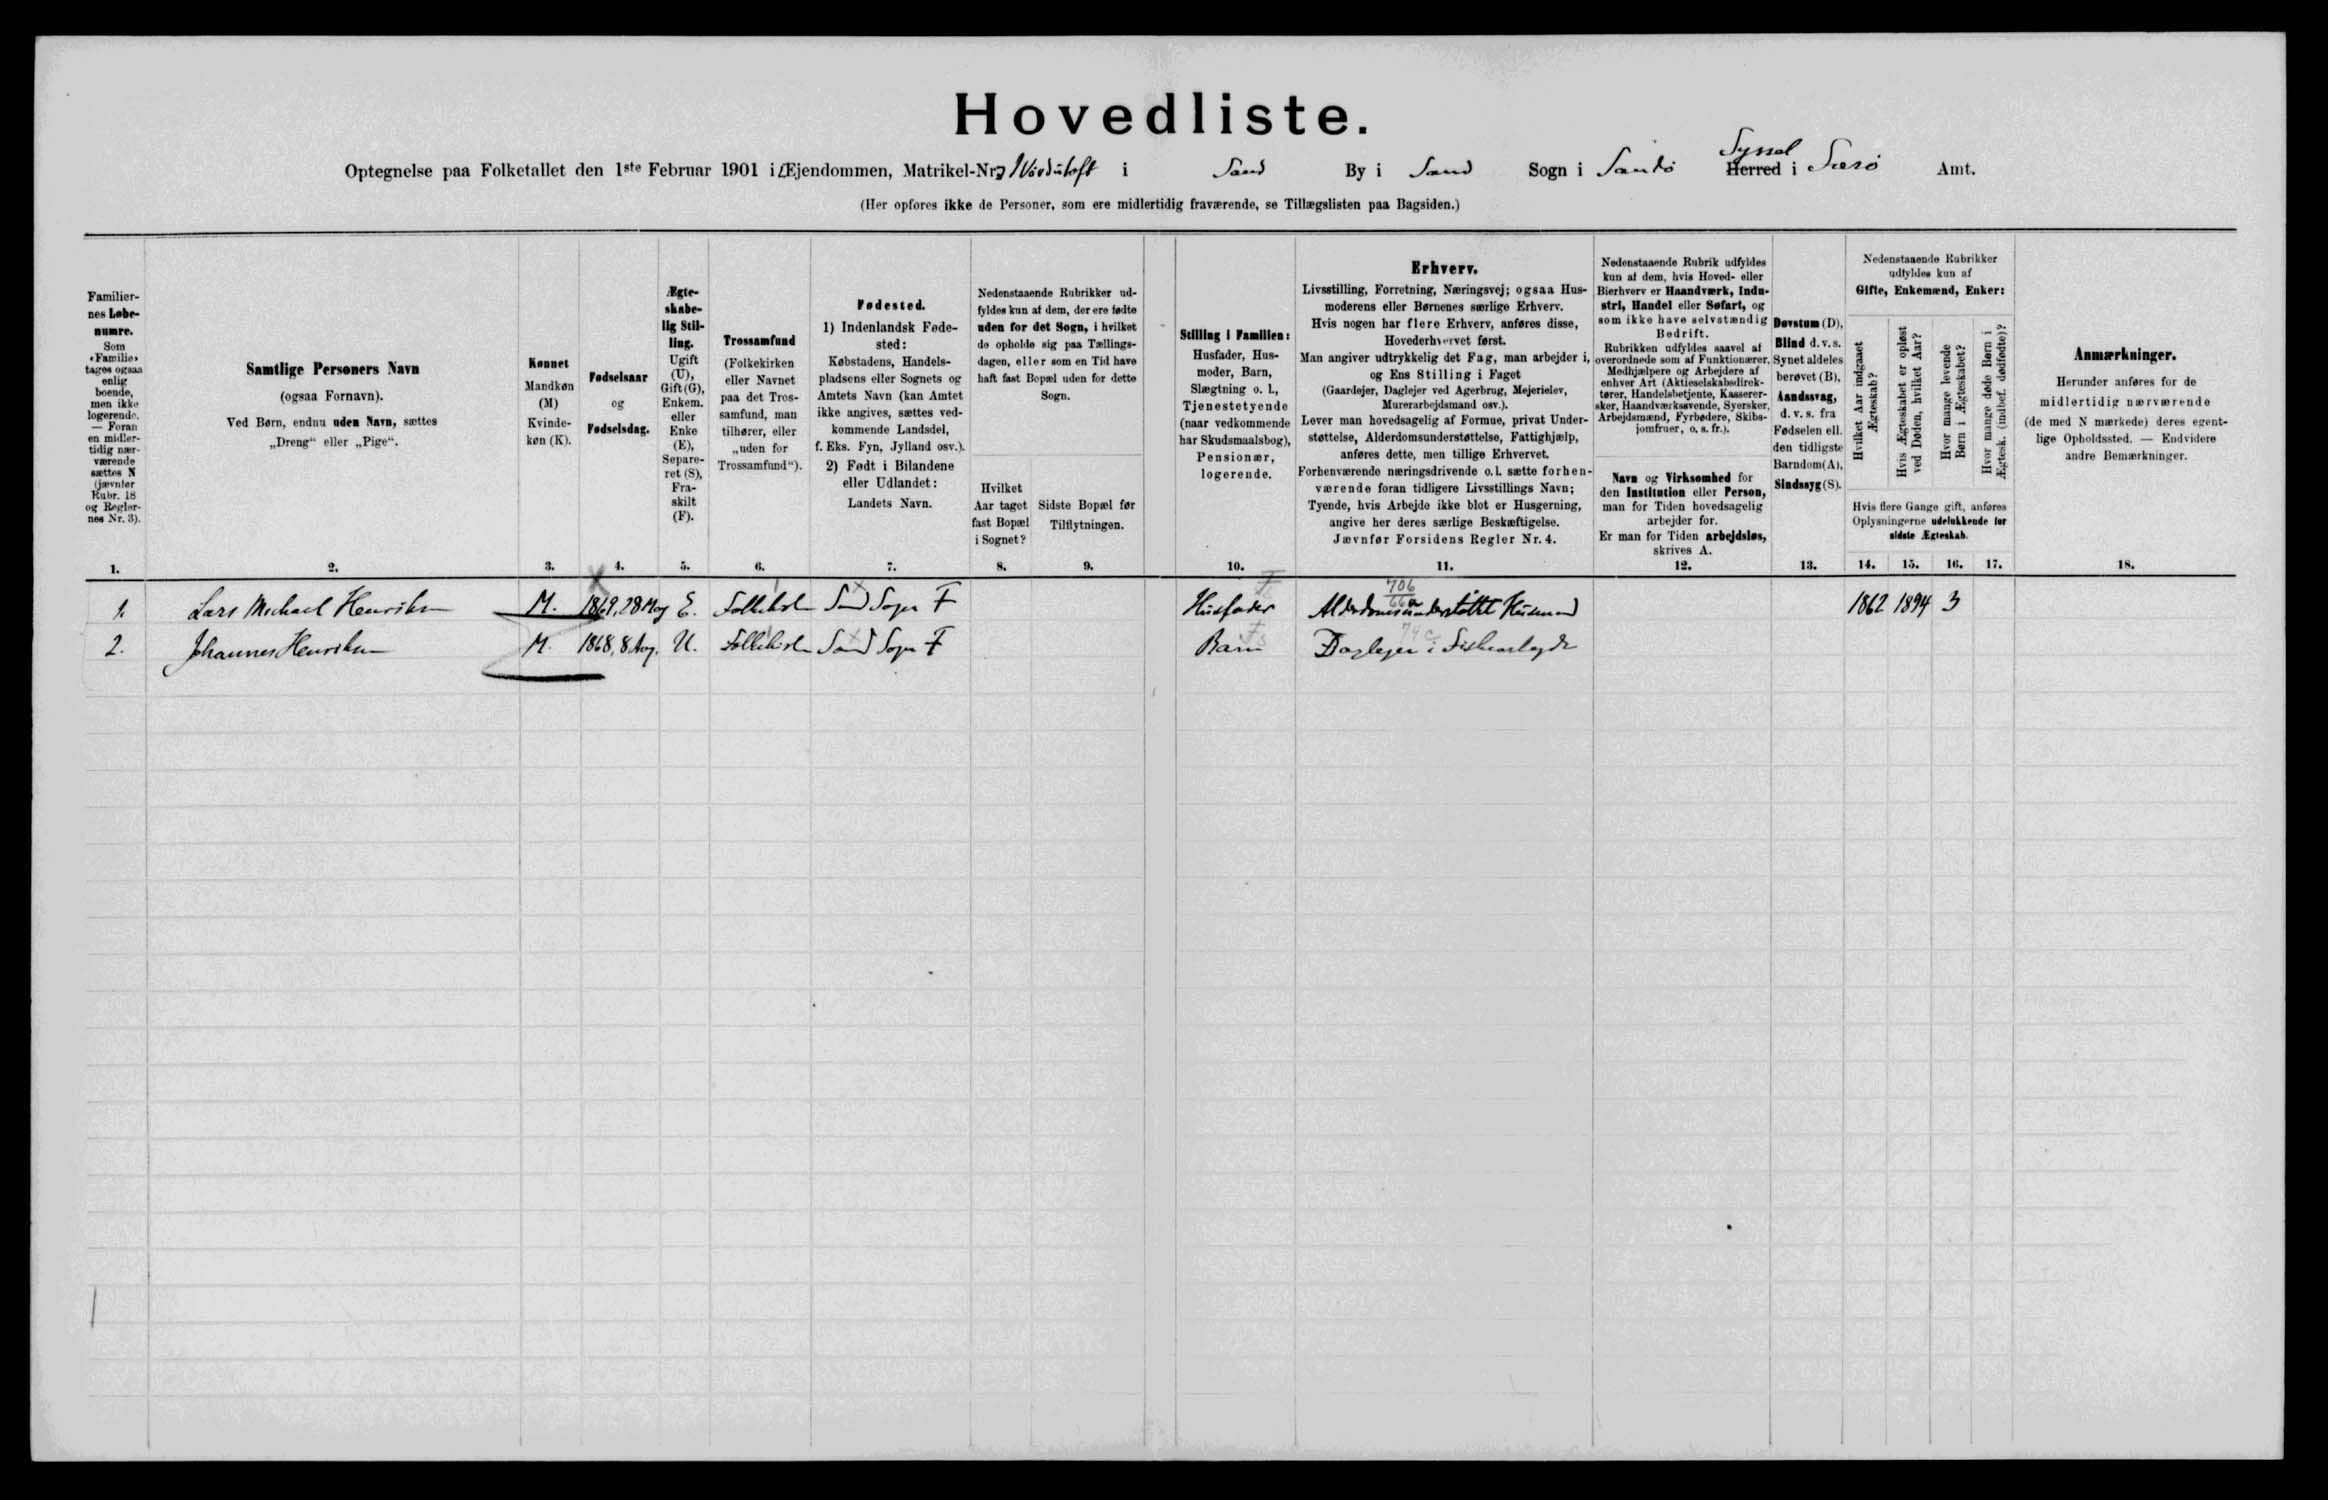 Hovedliste.
Optegnelse paa Folketallet den 1ste Februar 1901 i Ejendommen, Matrikel-Nr. i Sand By i Sand Sogn i Sandø Syssel Herred i Færø Amt.
(Her opføres ikke de Personer, som ere midlertidig fraværende, se Tillægslisten paa Bagsiden.)
Familier-
nes Løbe-
numre.
Som
«Familie»
tages ogsaa
enlig
boende,
men ikke
logerende.
— Foran
en midler-
tidig nær-
værende
sættes N
(jævnfør
Rubr. 18
og Regler-
nes Nr. 3).
1.
Samtlige Personers Navn
(ogsaa Fornavn).
Ved Børn, endnu uden Navn, sættes
„Dreng“ eller „Pige“.
2.
Kønnet
Mandkøn
(M)
Kvinde-
køn (K).
3.
Fødselsaar
og
Fødselsdag.
4.
Ægte-
skabe-
lig Stil-
ling.
Ugift
(U),
Gift (G),
Enkem.
eller
Enke
(E),
Separe-
ret (S),
Fra-
skilt
(F).
5.
Trossamfund
(Folkekirken
eller Navnet
paa det Tros-
samfund, man
tilhører, eller
„uden for
Trossamfund“).
6.
Fødested.
1) Indenlandsk Føde-
sted:
Købstadens, Handels-
pladsens eller Sognets og
Amtets Navn (kan Amtet
ikke angives, sættes ved-
kommende Landsdel,
f. Eks. Fyn, Jylland osv.).
2) Født i Bilandene
eller Udlandet:
Landets Navn.
7.
Nedenstaaende Rubrikker ud-
fyldes kun af dem, der ere fødte
uden for det Sogn, i hvilket
de opholde sig paa Tællings-
dagen, eller som en Tid have
haft fast Bopæl uden for dette
Sogn.
Hvilket
Aar taget
fast Bopæl
i Sognet?
8.
Sidste Bopæl før
Tilflytningen.
9.
Stilling i Familien:
Husfader, Hus-
moder, Barn,
Slægtning o. l.,
Tjenestetyende
(naar vedkommende
har Skudsmaalsbog),
Pensionær,
logerende.
10.
Erhverv.
Livsstilling, Forretning, Næringsvej; ogsaa Hus-
moderens eller Børnenes særlige Erhverv.
Hvis nogen har flere Erhverv, anføres disse,
Hovederhvervet først.
Man angiver udtrykkelig det Fag, man arbejder i,
og Ens Stilling i Faget
(Gaardejer, Daglejer ved Agerbrug, Mejerielev,
Murerarbejdsmand osv.).
Lever man hovedsagelig af Formue, privat Under-
støttelse, Alderdomsunderstøttelse, Fattighjælp,
anføres dette, men tillige Erhvervet.
Forhenværende næringsdrivende o. l. sætte forhen-
værende foran tidligere Livsstillings Navn;
Tyende, hvis Arbejde ikke blot er Husgerning,
angive her deres særlige Beskæftigelse.
Jævnfør Forsidens Regler Nr. 4.
11.
Nedenstaaende Rubrik udfyldes
kun af dem, hvis Hoved- eller
Bierhverv er Haandværk, Indu-
stri, Handel eller Søfart, og
som ikke have selvstændig
Bedrift.
Rubrikken udfyldes saavel af
overordnede som af Funktionærer,
Medhjælpere og Arbejdere af
enhver Art (Aktieselskabsdirek-
tører, Handelsbetjente, Kasserer-
sker, Haandværkssvende, Syersker,
Arbejdsmænd, Fyrbødere, Skibs-
jomfruer, o. s. fr.).
Navn og Virksomhed for
den Institution eller Person,
man for Tiden hovedsagelig
arbejder for.
Er man for Tiden arbejdsløs,
skrives A.
12.
Døvstum (D),
Blind d. v. s.
Synet aldeles
berøvet (B),
Aandssvag,
d. v. s. fra
Fødselen ell.
den tidligste
Barndom (A),
Sindssyg (S).
13.
Nedenstaaende Rubrikker
udfyldes kun af
Gifte, Enkemænd, Enker:
Hvilket Aar indgaaet
Ægteskab?
Hvis Ægteskabet er opløst
ved Døden, hvilket Aar?
Hvor mange levende
Børn i Ægteskabet?
Hvor mange døde Børn i
Ægtesk. (indbef. dødfødte)?
Hvis flere Gange gift, anføres
Oplysningerne udelukkende for
sidste Ægteskab.
14. 15. 16. 17.
Anmærkninger.
Herunder anføres for de
midlertidig nærværende
(de med N mærkede) deres egent-
lige Opholdssted. — Endvidere
andre Bemærkninger.
18.
1. Lars Michael Henriksen M. 28 Maj E. Folkekirken Sand Sogn F Husfader Alderdomsunderstøttet Husmand 1862 1894 3
2. Johannes Henriksen M. 1868, 8 Aug. U. Folkekirken Sand Sogn F Barn Daglejer i